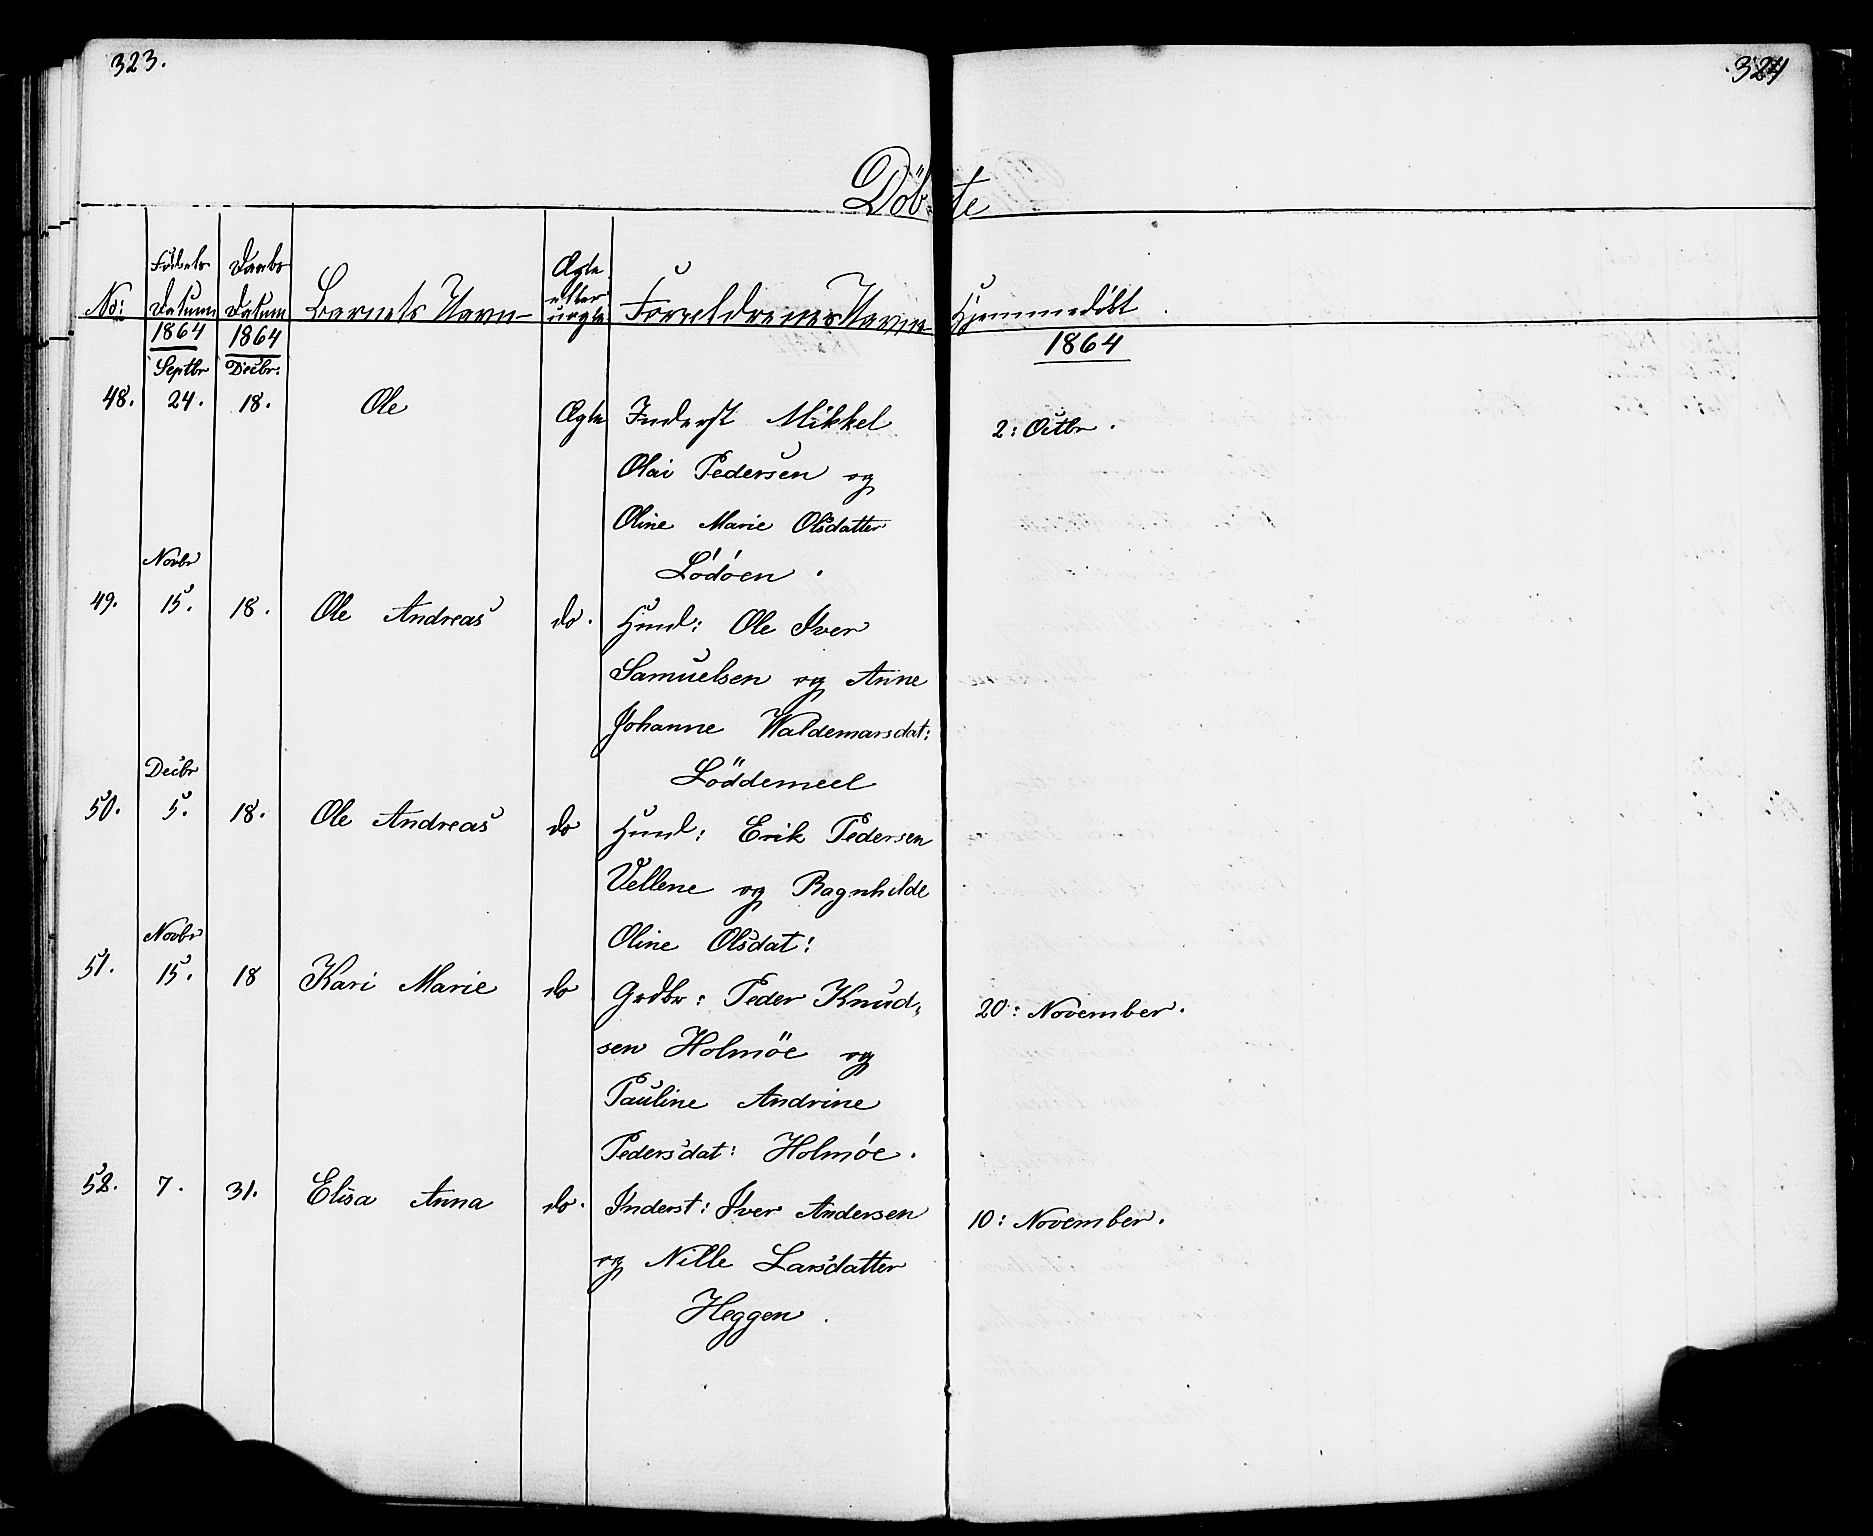 323.
324
Döbte
No:
Fødsels
Datum
Daabs
Datum
Barnets Navn
Ægte
eller
uægte
Forældrenes Navne
Hjemmedöbt
1864
1864
1864
Septbr
Decbr:
48. 24. 18. Ole Ægte Inderst Mikkel 2: Octbr.
Olai Pedersen og
Oline Marie Olsdatter
Lódóen.
Novbr
49. 15. 18. Ole Andreas do. Huusm: Ole Iver
Samuelsen og Anne
Johanne Waldemarsdat:
Decbr
Löddemeel
50. 5. 18. Ole Andreas do Huusm: Erik Pedersen
Vellene og Ragnhilde
Novbr
Oline Olsdat:
51. 15. 18 Kari Marie do Grdbr: Peder Knud- 20: November.
sen Holmöe og
Pauline Andrine
Pedersdat: Holmóe.
52. 7. 31. Elisa Anna do. Inderst: Iver Andersen 10: November.
og Nille Larsdatter
Heggen.